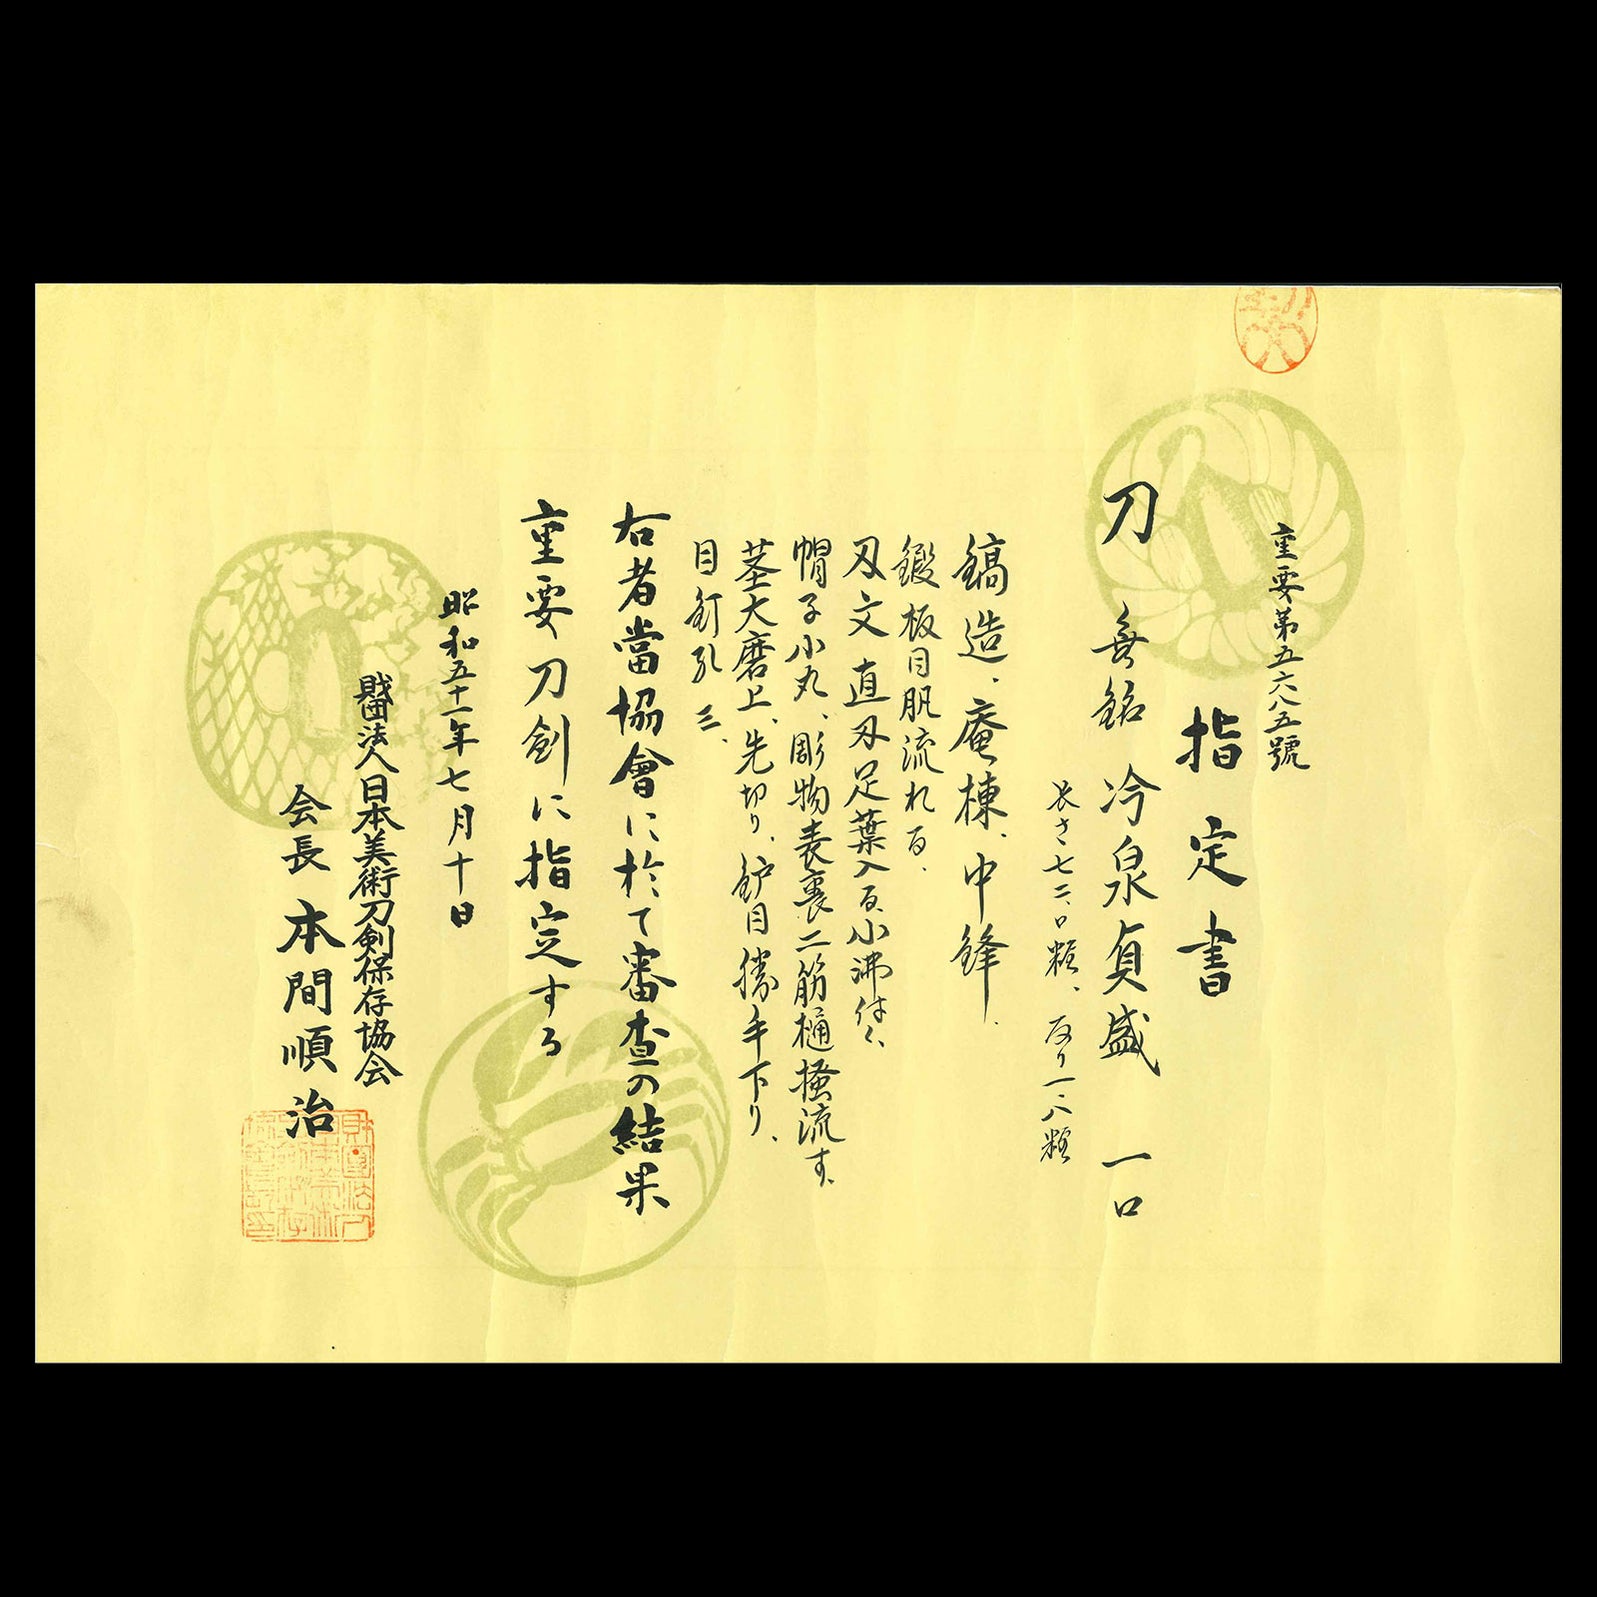 重要第五六八五號
指定書
刀 無銘 冷泉貞盛 一口
長さ七二、〇糎、反り一、八糎
鎬造、庵棟、中鋒、
鍛 板目肌流れる、
刃文 直刃足葉入る、小沸付く、
帽子 小丸、彫物 表裏二筋樋掻流す、
茎 大磨上、先切り、鈩目勝手下り、
目釘孔 三、
右者當協會に於て審査の結果
重要刀剣に指定する
昭和五十一年七月十日
財団法人日本美術刀剣保存協会
会長 本間順治